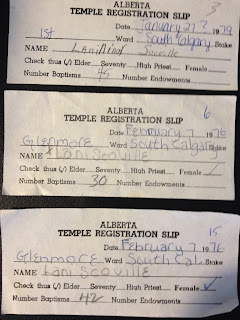 3
ALBERTA
TEMPLE REGISTRATION SLIP
Date January 27? 1979
1st Ward South Calgary Stake
NAME Lani Scoville
Check thus (√) Elder Seventy High Priest Female
Number Baptisms 45 Number Endowments
6
ALBERTA
TEMPLE REGISTRATION SLIP
Date February 7 1976
Glenmore Ward South Calgary Stake
NAME Lani Scoville
Check thus (√) Elder Seventy High Priest Female ✓
Number Baptisms 30 Number Endowments
15
ALBERTA
TEMPLE REGISTRATION SLIP
Date February 7 1976
Glenmore Ward South Cal. Stake
NAME Lani Scoville
Check thus (√) Elder Seventy High Priest Female ✓
Number Baptisms 42 Number Endowments